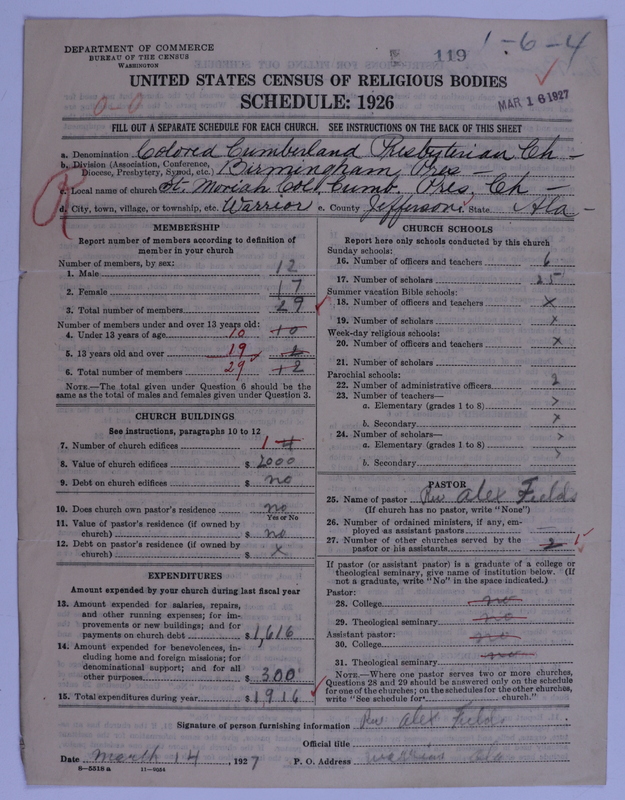 DEPARTMENT OF COMMERCE
BUREAU OF THE CENSUS
WASHINGTON
119
1-6-4
UNITED STATES CENSUS OF RELIGIOUS BODIES
SCHEDULE: 1926
MAR 16 1927
0-0
FILL OUT A SEPARATE SCHEDULE FOR EACH CHURCH. SEE INSTRUCTIONS ON THE BACK OF THIS SHEET
a. Denomination Colored Cumberland Presbyterian Ch -
b. Division (Association, Conference, Diocese, Presbytery, Synod, etc.) Birmingham Pres -
c. Local name of church St. Moriah Col. Cumb. Pres. Ch -
d. City, town, village, or township, etc. Warrior e. County Jefferson State Ala -
MEMBERSHIP
Report number of members according to definition of member in your church
Number of members, by sex:
1. Male 12
2. Female 17
3. Total number of members 29
Number of members under and over 13 years old:
4. Under 13 years of age 10 10
5. 13 years old and over 19 2
6. Total number of members 29 12
NOTE.—The total given under Question 6 should be the same as the total of males and females given under Question 3.
CHURCH BUILDINGS
See instructions, paragraphs 10 to 12
7. Number of church edifices 1
8. Value of church edifices $ 2000
9. Debt on church edifices $ no
10. Does church own pastor's residence no
Yes or No
11. Value of pastor's residence (if owned by church) $ no
12. Debt on pastor's residence (if owned by church) $ x
EXPENDITURES
Amount expended by your church during last fiscal year
13. Amount expended for salaries, repairs, and other running expenses; for improvements or new buildings; and for payments on church debt $ 1,616
14. Amount expended for benevolences, including home and foreign missions; for denominational support; and for all other purposes $ 300
15. Total expenditures during year $ 1,916
CHURCH SCHOOLS
Report here only schools conducted by this church
Sunday schools:
16. Number of officers and teachers 6
17. Number of scholars 25
Summer vacation Bible schools:
18. Number of officers and teachers x
19. Number of scholars x
Week-day religious schools:
20. Number of officers and teachers x
21. Number of scholars
Parochial schools:
22. Number of administrative officers 2
23. Number of teachers—
a. Elementary (grades 1 to 8)
b. Secondary x
24. Number of scholars—
a. Elementary (grades 1 to 8)
b. Secondary
PASTOR
25. Name of pastor Rev Alex Fields
(If church has no pastor, write "None")
26. Number of ordained ministers, if any, employed as assistant pastors
27. Number of other churches served by the pastor or his assistants 2 1
If pastor (or assistant pastor) is a graduate of a college or theological seminary, give name of institution below. (If not a graduate, write "No" in the space indicated.)
Pastor:
28. College no
29. Theological seminary no
Assistant pastor:
30. College no
31. Theological seminary no
NOTE.—Where one pastor serves two or more churches, Questions 28 and 29 should be answered only on the schedule for one of the churches; on the schedules for the other churches, write "See schedule for church."
Signature of person furnishing information Rev Alex Fields
Official title
Date March 14, 1927 P. O. Address Warrior Ala
8-5518 a 11-9054